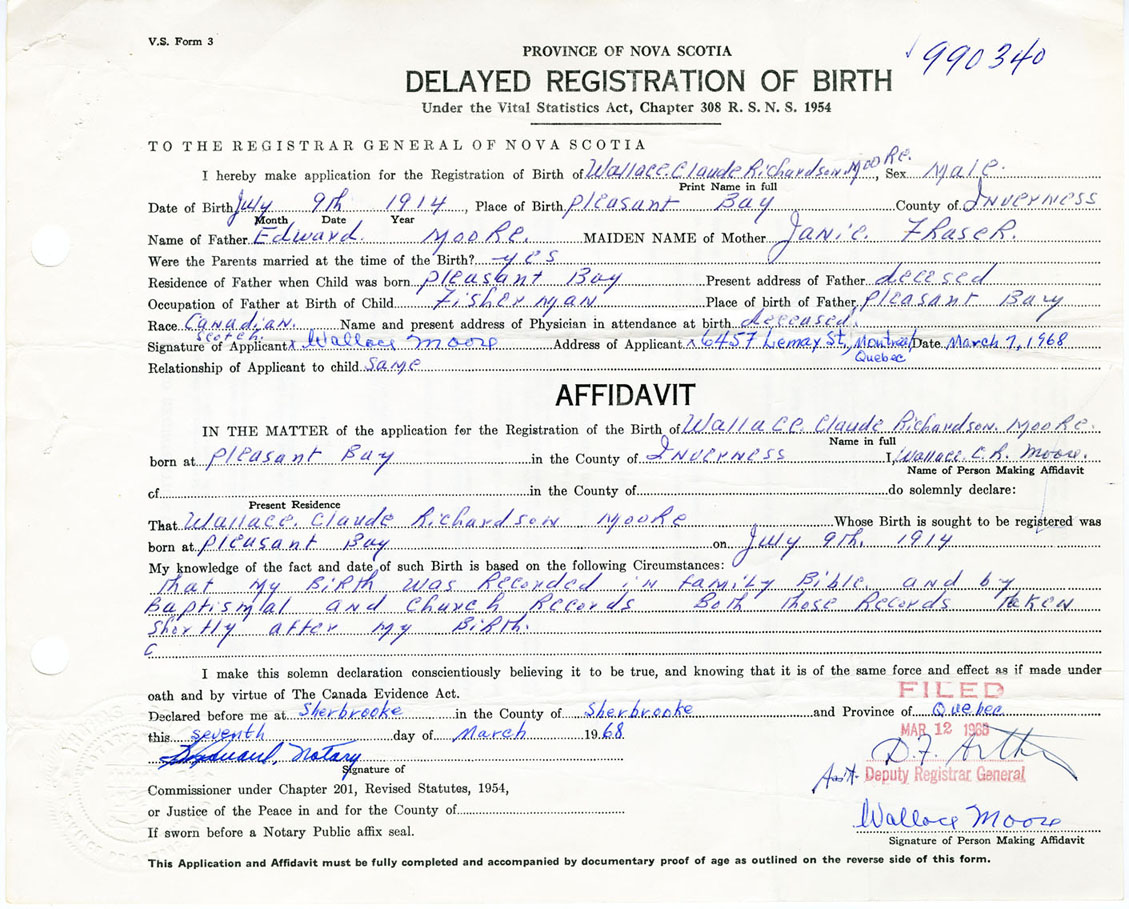 V.S. Form 3
PROVINCE OF NOVA SCOTIA
990340
DELAYED REGISTRATION OF BIRTH
Under the Vital Statistics Act, Chapter 308 R. S. N. S. 1954
TO THE REGISTRAR GENERAL OF NOVA SCOTIA
I hereby make application for the Registration of Birth of Wallace Claude Richardson Moore. , Sex Male.
Print Name in full
Date of Birth July 9th 1914 , Place of Birth Pleasant Bay County of Inverness
Month Date Year
Name of Father Edward Moore. MAIDEN NAME of Mother Janie Fraser.
Were the Parents married at the time of the Birth? yes
Residence of Father when Child was born Pleasant Bay Present address of Father decesed
Occupation of Father at Birth of Child Fisherman Place of birth of Father Pleasant Bay
Race Canadian. Name and present address of Physician in attendance at birth deceused.
Scotch.
Signature of Applicant x Wallace Moore Address of Applicant x 6457 Lemay St., Montreal Date March 7, 1968
Quebec
Relationship of Applicant to child Same
AFFIDAVIT
IN THE MATTER of the application for the Registration of the Birth of Wallace Claude Richardson Moore.
Name in full
born at Pleasant Bay in the County of Inverness I, Wallace C.R. Moore.
Name of Person Making Affidavit
of in the County of do solemnly declare:
Present Residence
That Wallace Claude Richardson Moore Whose Birth is sought to be registered was
born at Pleasant Bay on July 9th. 1914
My knowledge of the fact and date of such Birth is based on the following Circumstances:
That my Birth was Recorded in family Bible and by
Baptismal and Church Records Both those Records Taken
Shortly after my Birth.
I make this solemn declaration conscientiously believing it to be true, and knowing that it is of the same force and effect as if made under
oath and by virtue of The Canada Evidence Act.
FILED
Declared before me at Sherbrooke in the County of Sherbrooke and Province of Quebec
this seventh day of March 19 68
MAR 12 1968
Notary
Signature of
D.F. Arthur
Ass't. Deputy Registrar General
Commissioner under Chapter 201, Revised Statutes, 1954,
or Justice of the Peace in and for the County of
Wallace Moore
If sworn before a Notary Public affix seal.
Signature of Person Making Affidavit
This Application and Affidavit must be fully completed and accompanied by documentary proof of age as outlined on the reverse side of this form.